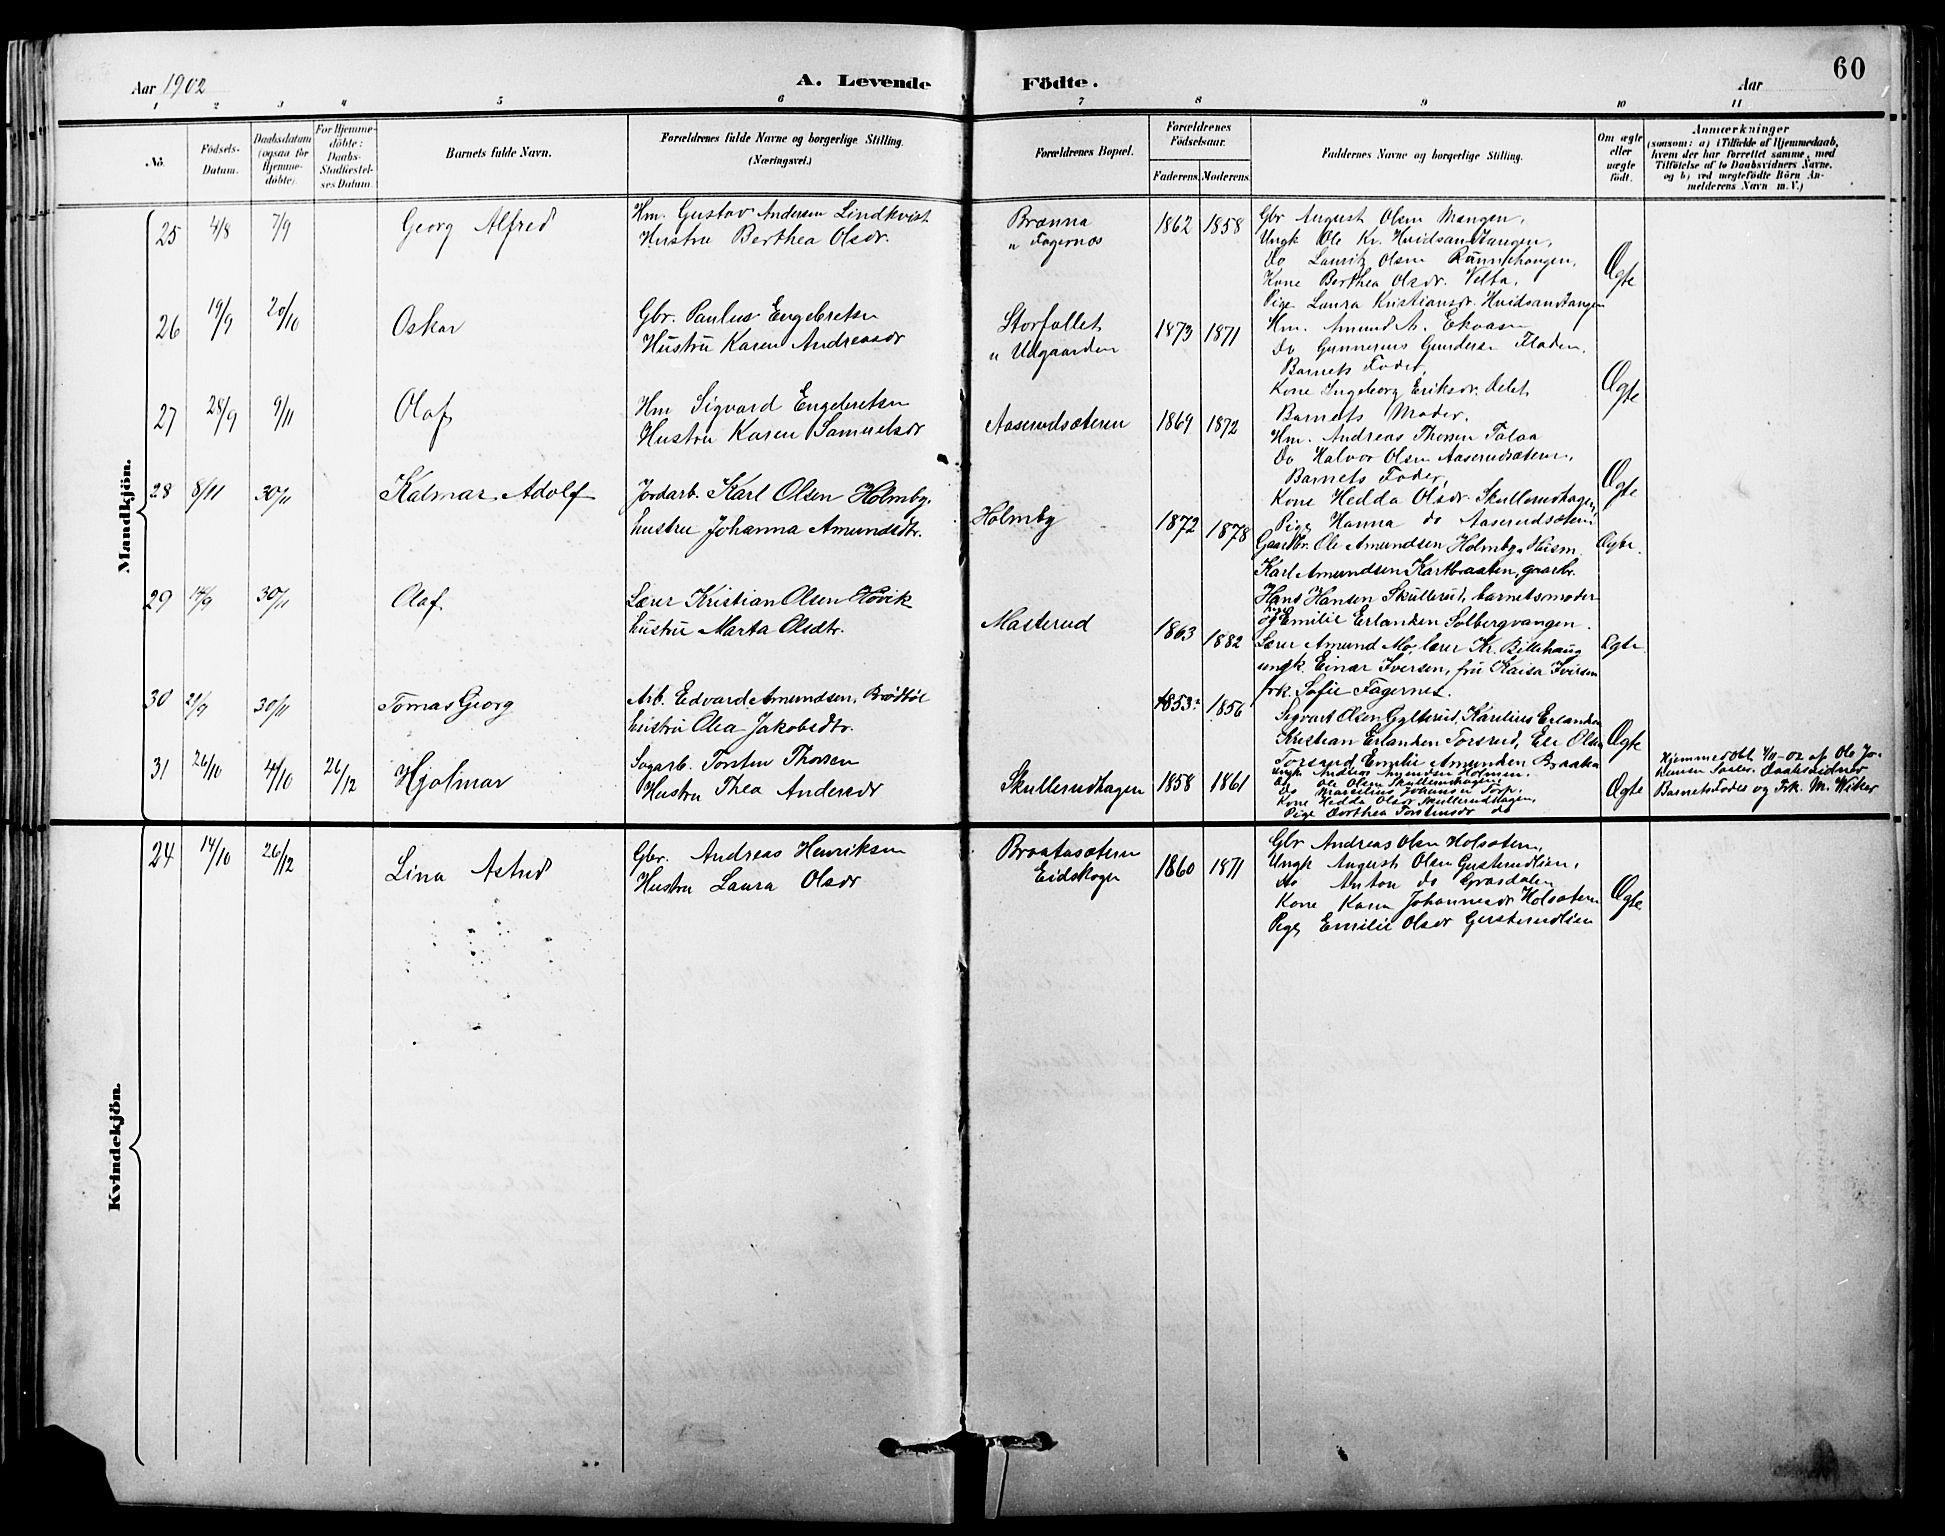 Aar 1902
A. Levende Födte.
Aar
60
1 2 3 4 5 6 7 8 9 10 11
No.
Födsels-
Datum.
Daabsdatum
(ogsaa for
Hjemme-
döbte).
For Hjemme-
döbte:
Daabs-
Stadfæstel-
ses Datum.
Barnets fulde Navn.
Forældrenes fulde Navne og borgerlige Stilling.
(Næringsvei.)
Forældrenes Bopæl.
Forældrenes
Födselsaar.
Faderens.
Moderens.
Faddernes Navne og borgerlige Stilling.
Om ægte
eller
uægte
født.
Anmærkninger
(saasom: a) i Tilfælde af Hjemmedaab,
hvem der har forrettet samme, med
Tilföielse af to Daabsvidners Navne,
og b) ved uægtefödte Börn An-
melderens Navn m. V.)
Mandkjön.
25 4/8 7/9 Georg Alfred
Hm. Gustav Andersen Lindkvist
Hustru Berthea Olsdr.
Brænna
u Fagernæs
1862 1858
Gbr August Olsen Mangen,
Ungk Ole Kr. Hvidsandtangen,
Do Lauritz Olsen
Kone Berthea Olsdr. Velta,
Pige Laura Kristiansdr. Hvidsandtangen
Ægte
26 19/9 20/10 Oskar
Gbr. Paulus Engebretsen
Hustru Karen Andreasdr
Storfallet
u Udgaarden
1873 1871
Hm. Amund A. Ekaasen
Do Gunnerius Gundersen Fladen,
Barnets Fader,
Kone Ingeborg Eriksdr.
Barnets Moder.
Ægte
27 28/9 9/11 Olaf
Hm Sigvard Engebretsen
Hustru Karen Samuelsdr
Aaserudsæteren
1869 1872
Hm. Andreas Thorsen
Do Halvor Olsen Aaserudsæteren,
Barnets Fader,
Kone Hedda Olsdr. Skullerudhagen,
Pige Hanna do Aaserudsæteren
Ægte
28 8/11 30/11 Kalmar Adolf
Jordarb. Karl Olsen Holmby,
hustru Johanna Amundsdtr.
Holmby
1872 1878
Gaardbr. Ole Amundsen Holmby, Husm.
Karl Amundsen Kartbraaten, gaardbr.
Hans Hansen Skullerud, barnets moder
og Emilie Erlandsen Solbergvangen.
Ægte.
29 14/9 30/11 Olaf.
Lærer Kristian Olsen Høvik
hustru Marta Olsdtr.
Masterud
1863 1882
Lærer Amund Mo, lærer Kr. Billehaug
ungk. Einar Iversen, fru Kaisa Iversen
frk. Sofie Fagernes.
Ægte
30 21/9 30/11 Tomas Georg
Arb. Edvard Amundsen, Brødbøl
hustru Olea Jakobsdtr.
1853 1856
Sigvart Olsen Gylterud, Karelius Erlandsen
Kristian Erlandsen Torsrud, Eli Olsen
Torsrud, Emilie Amundsen Braaka
Ægte
31 26/10 4/10 26/12 Hjalmar
Sagarb. Torsten Thorsen
Hustru Thea Andersdr
Skullerudhagen
1858 1861
Ungk Andreas Amundsen Holmen,
Do Ole Olsen Skullerudhagen,
Do Marselius Johansen Torp,
Kone Hedda Olsdr Skullerudhagen,
Pige Dorthea Torstensdr do
Ægte
Hjemmedöbt 4/11-02 af Ole Jo-
Daabsvidner
Barnets Fader og Frk. M. Wiker
Kvindekjön.
24 14/10 26/12 Lina Astrid
Gbr. Andreas Henriksen
Hustru Laura Olsdr
Braatasæteren
Eidskogen
1860 1871
Gbr Andreas Olsen Holsæteren,
Ungk August Olsen Gusterudlien,
Do Anton do Grasdalen
Kone Karen Johannesdr Holsæteren
Pige Emilie Olsdr Gusterudlien
Ægte